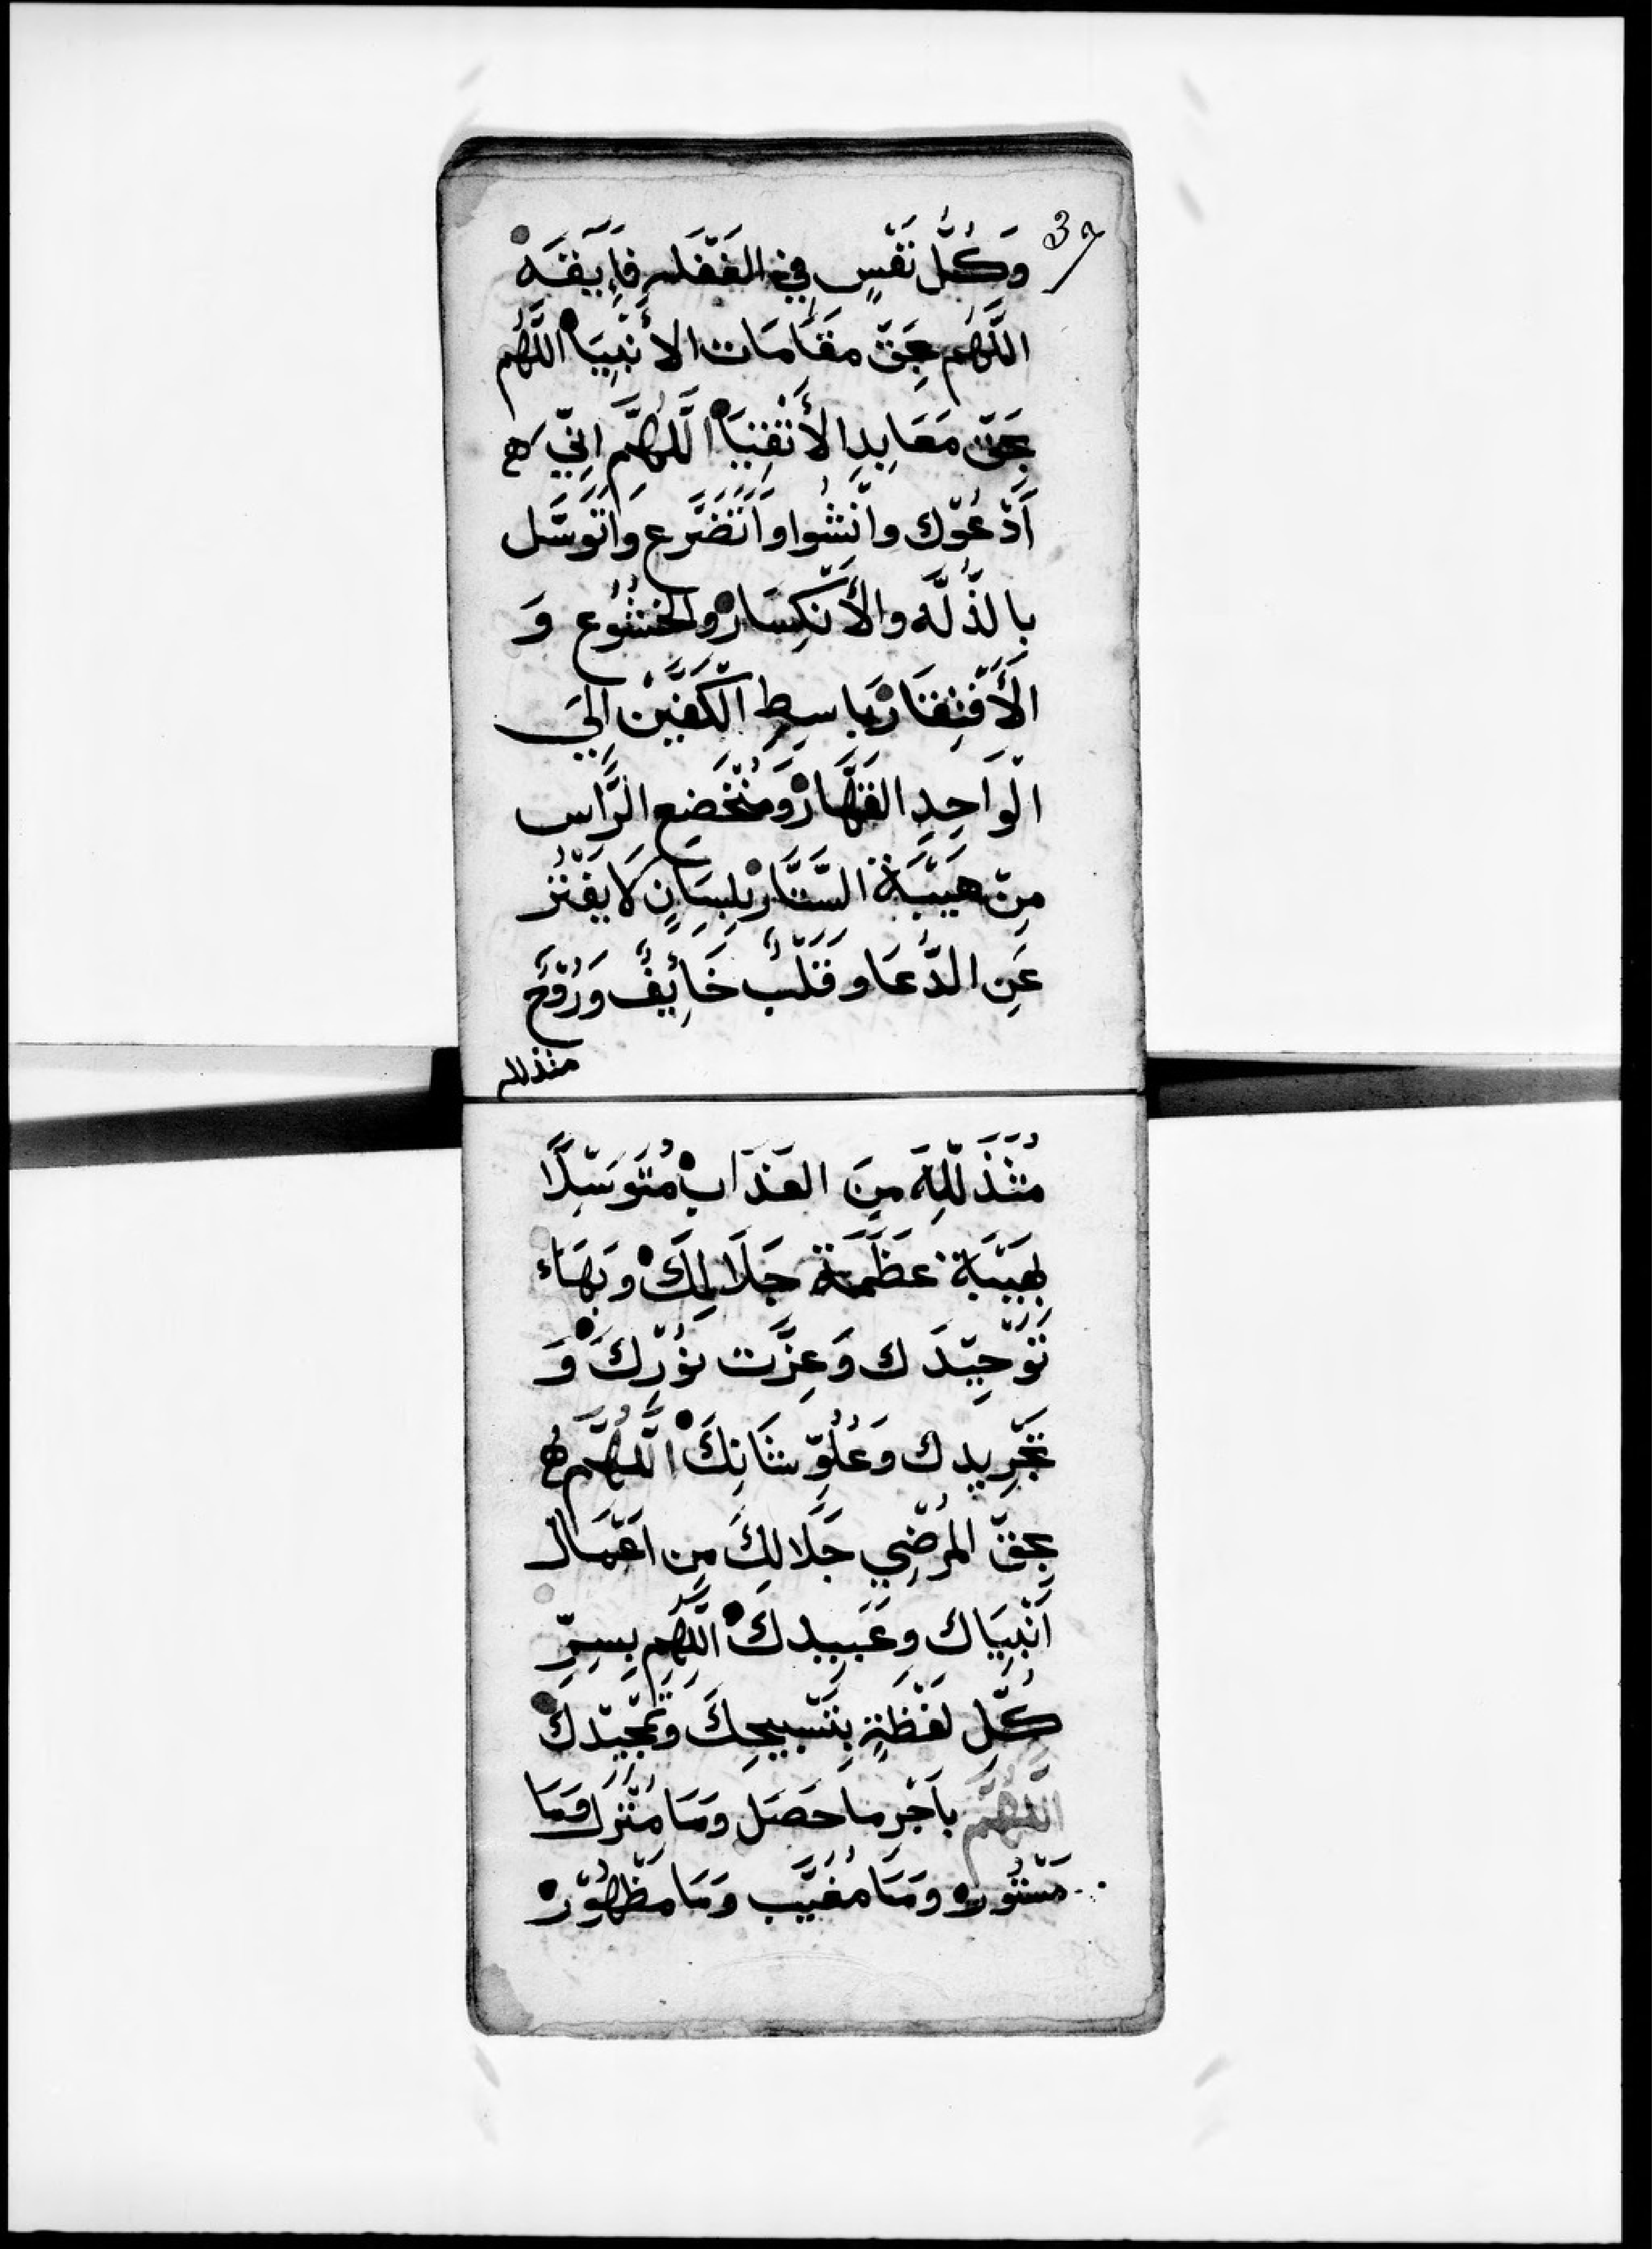 وَكُلَّ نَفْسٍ فِي الغَفْلَه فَإِيقَه
اللَّهُم بِحَقّ مَقَامَات الأَنْبِيَا اللَّهُم
بِحَقّ مَعَابِدِ الأَتْقِيَا اللَّهُمَّ اِنِّي
أَدْعُوْك وانْشُوا وَاَتَضَرَّع وَاتَوَسَّل
بالذُّلَّه والأَنْكِسَارْ والخُشُوع وَ
الأَفْتِقَارْ بَاسِطِ الْكَفَّيْن اِلَي
الْوَاحِدِ القَهَّارْ وَمُنْخَضِع الرَّاس
مِنْ هَيْبَة السَّتَّارْ بِلِسَانٍ لَا يَفْتُر
عَنِ الدُّعَا وقَلْبٌ خَائِفٌ وَرُوْحٌ
متذلله
مُتَذَلِّلَة مِنَ العَذَابْ مُتَوَسِّلًا
بِهَيْبَة عَظَمَة جَلَالِكَ وبَهَاء
تَوْحِيْدَك وَعِزَّت نُوْرِكَ وَ
تَجْرِيدك وَعُلُوِّ شَانِكَ اللَّهُمَّ
بِحَقّ المُرْضِي جَلَالِكَ مِن اَعْمَال
اَنْبِيَاك وعَبِيدكَ اللَّهُم بِسِرِّ
كُلِّ لَفْظَةٍ بِتَسْبِيحِكَ وتَمْجِيْدكَ
اللَّهُمَّ باَجْرِ ما حَصَل وَمَا مُنْزَل وَمَا
مَسْتُورْ وَمَا مُغَيَّب وَمَا مَظْهُوْرْ